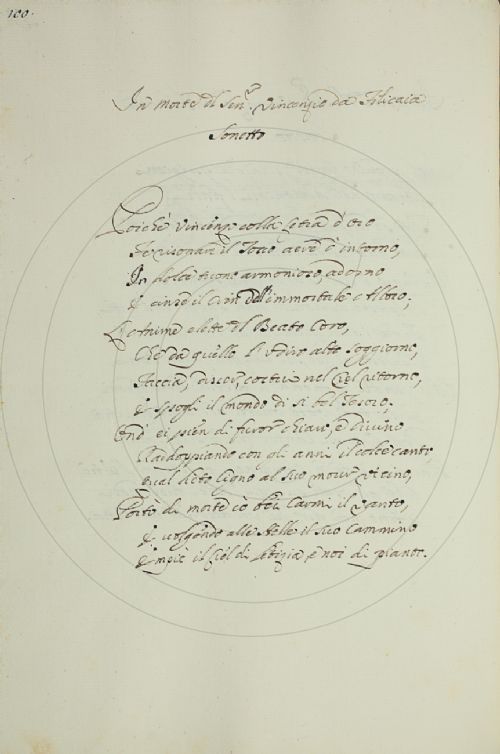 100.
In Morte del Sen.r Vincenzio da Filicaia
Sonetto
Poichè Vincenzo colla Cetra d'oro
Fe risonare il Tosco aere d'intorno,
In dolce suono armonioso, adorno
E cinse il crin dell'immortale Alloro;
L'Anime elette del Beato Coro,
Che da quello l'udiro alto soggiorno,
Faccia, disser, costui nel Ciel ritorno,
E spogli il mondo di sì bel Tesoro;
Ond' ei pien di furor chiaro, e Divino
Raddoppiando con gli anni il dolce canto
Qual Cigno al suo morir vicino,
Portò di morte co bei Carmi il vanto,
E volgendo alle stelle il suo Cammino
Empiè il Ciel di letizia, e noi di pianto.